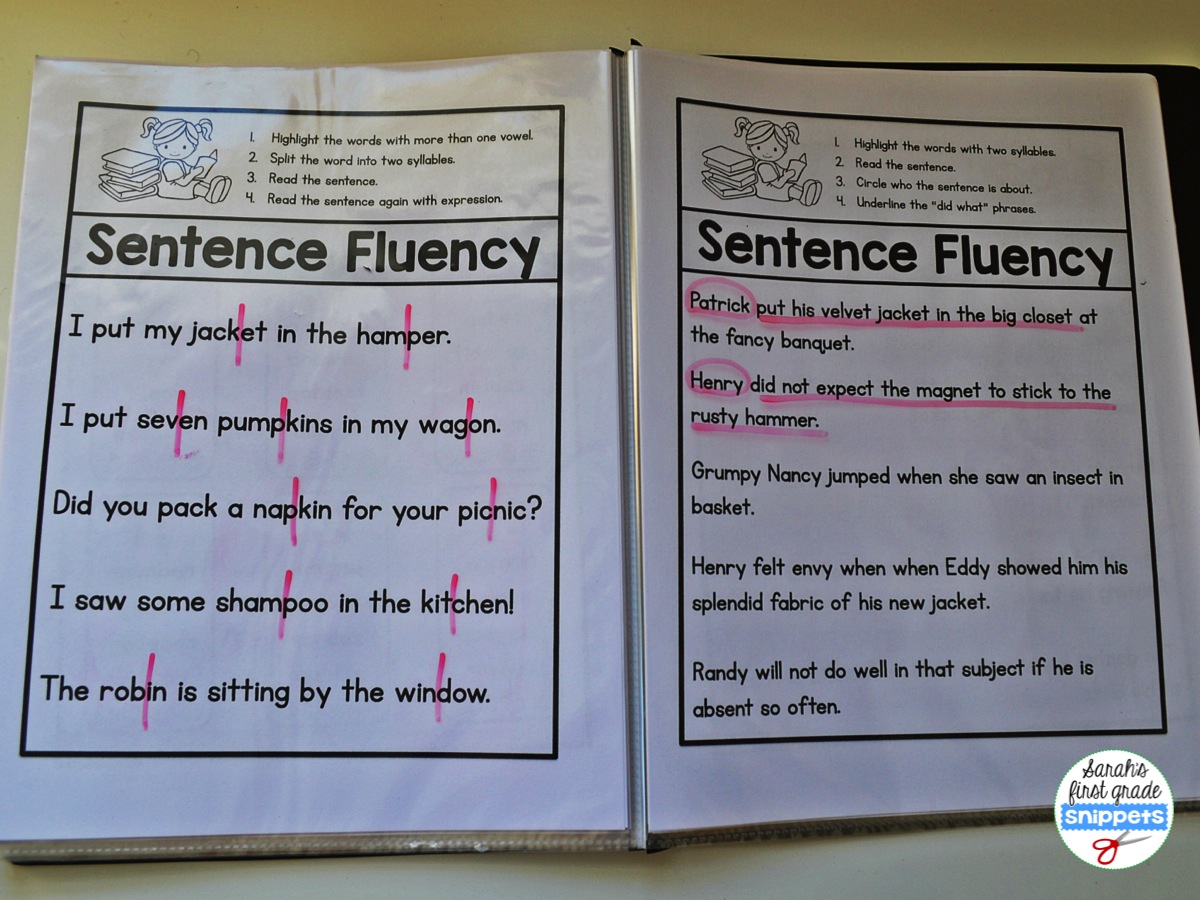 1. Highlight the words with more than one vowel.
2. Split the word into two syllables.
3. Read the sentence.
4. Read the sentence again with expression.
Sentence Fluency
I put my jacket in the hamper.
I put seven pumpkins in my wagon.
Did you pack a napkin for your picnic?
I saw some shampoo in the kitchen!
The robin is sitting by the window.
1. Highlight the words with two syllables.
2. Read the sentence.
3. Circle who the sentence is about.
4. Underline the "did what" phrases.
Sentence Fluency
Patrick put his velvet jacket in the big closet at
the fancy banquet.
Henry did not expect the magnet to stick to the
rusty hammer.
Grumpy Nancy jumped when she saw an insect in
basket.
Henry felt envy when when Eddy showed him his
splendid fabric of his new jacket.
Randy will not do well in that subject if he is
absent so often.
Sarah's
first grade
snippets